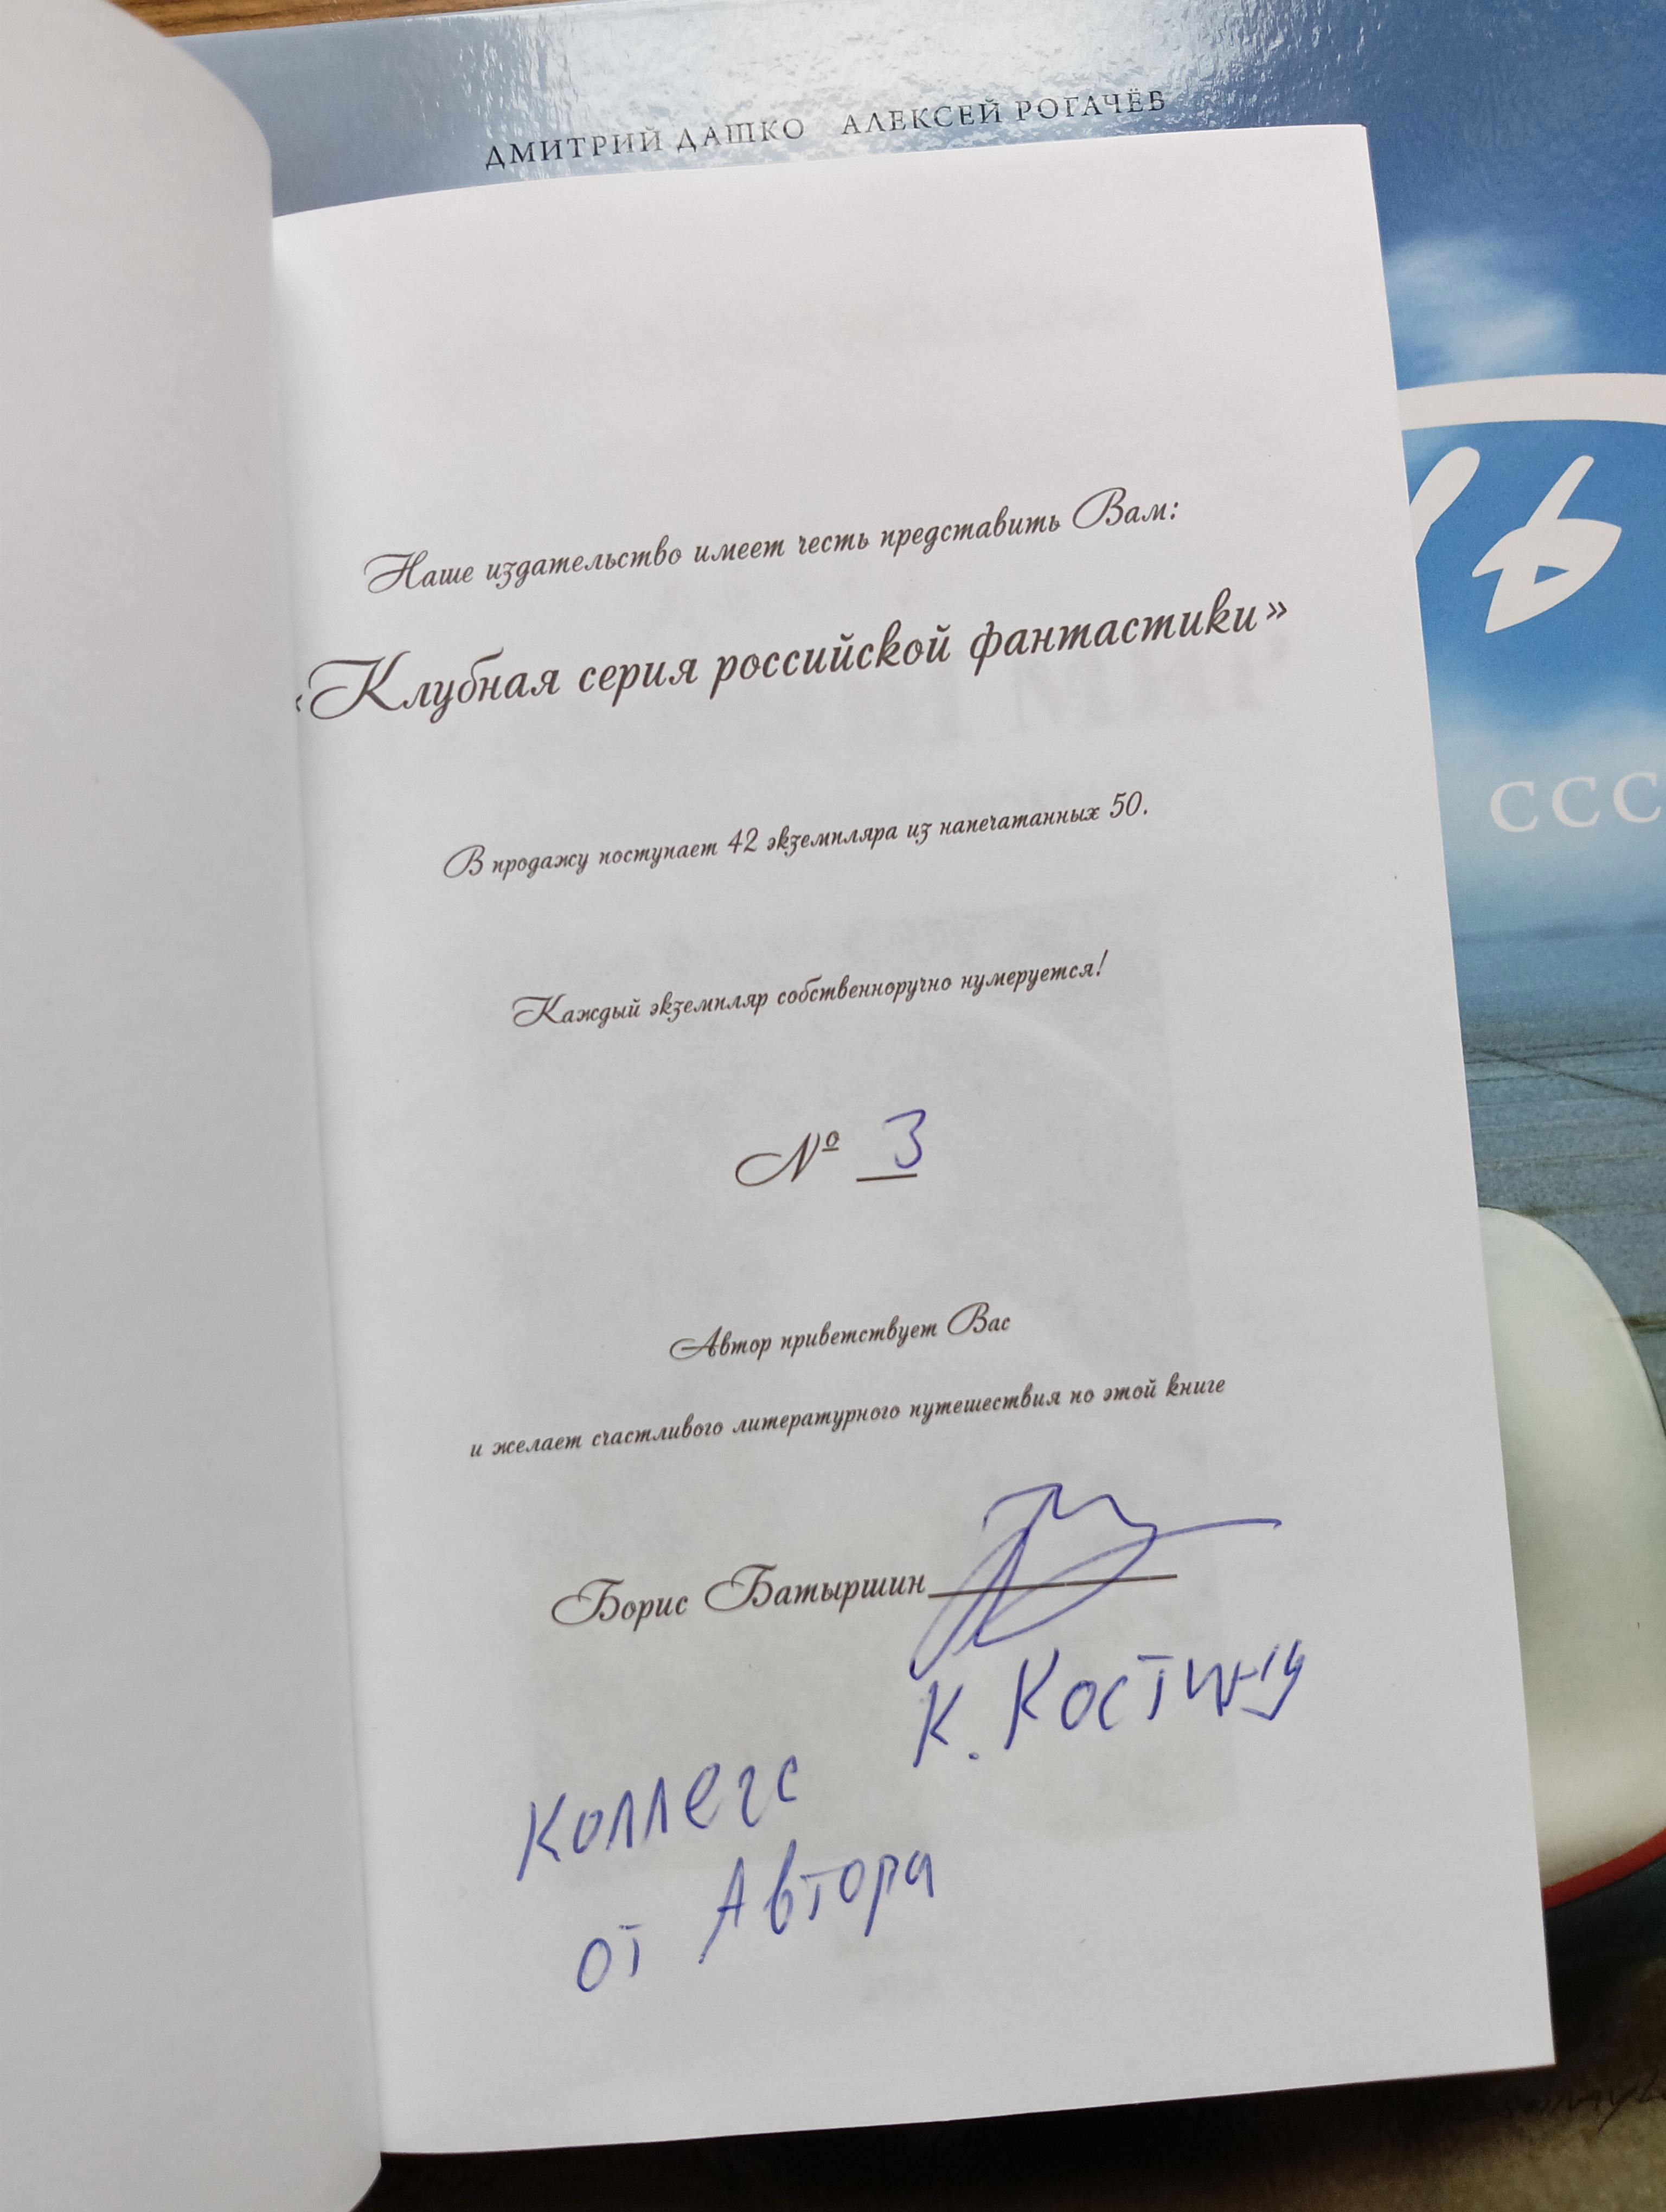 ДМИТРИЙ ДАШКО АЛЕКСЕЙ РОГАЧЁВ
Наше издательство имеет честь представить Вам:
«Клубная серия российской фантастики»
В продажу поступает 42 экземпляра из напечатанных 50.
Каждый экземпляр собственноручно нумеруется!
№ 3
Автор приветствует Вас
и желает счастливого литературного путешествия по этой книге
Борис Батыршин
К. Костину
Коллеге
от Автора
ССС